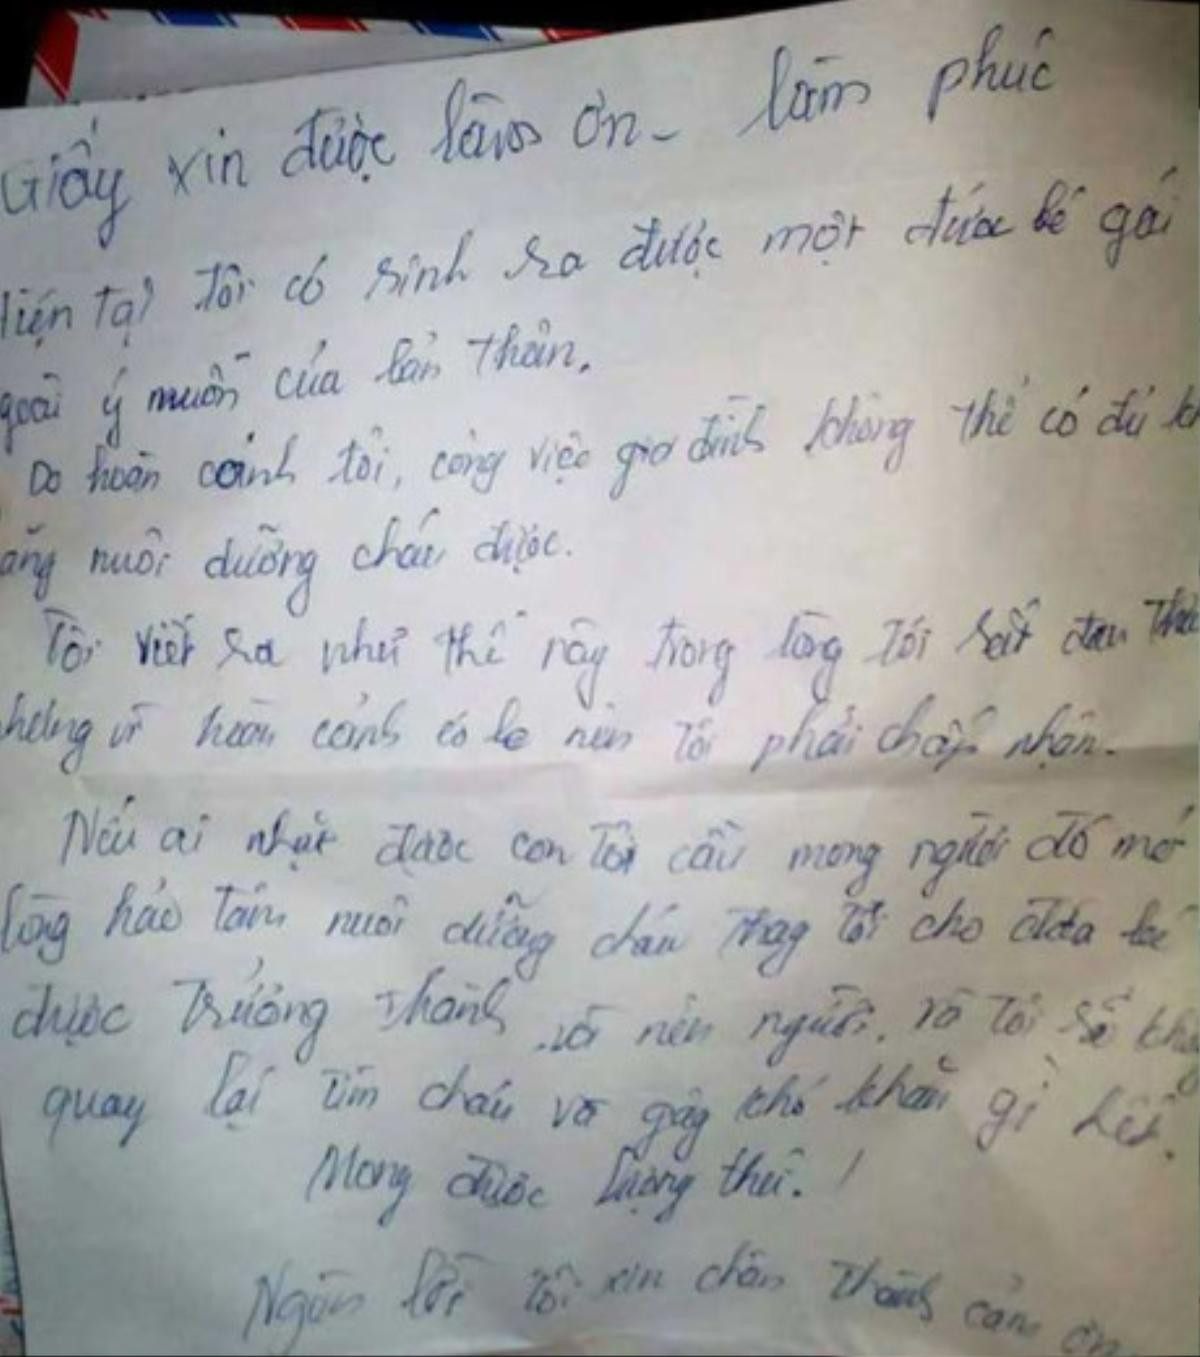 Giấy xin được làm ơn - làm phúc
Hiện tại tôi có sinh ra được một đứa bé gái
goài ý muốn của bản thân.
Do hoàn cảnh tôi, công việc gia đình không thể có đủ kh
ăng nuôi dưỡng cháu được.
Tôi viết ra như thế này trong lòng tôi rất đau
nhưng vì hoàn cảnh éo le nên tôi phải chấp nhận.
Nếu ai nhặt được con tôi cầu mong người đó mở
lòng hảo tâm nuôi dưỡng cháu thay tôi cho đứa bé
được trưởng thành và nên người. và tôi sẽ
quay lại tìm cháu và gây khó khăn gì hết.
Mong được lượng thứ. !
Ngàn lời tôi xin chân thành cảm ơn.